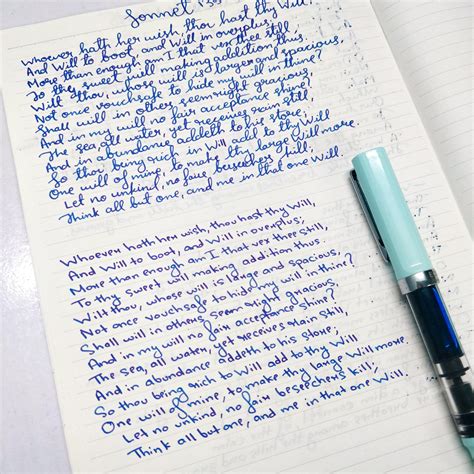 Sonnet
Whoever hath her wish, thou hast thy Will,
And Will to boot, and Will in overplus;
More than enough am I that vex thee still
To thy sweet will making addition thus.
Wilt thou, whose will is large and spacious,
Not once vouchsafe to hide my will in thine?
Shall will in others seem right gracious,
And in my will no fair acceptance shine?
The sea, all water, yet receives rain still,
And in abundance addeth to his store;
So thou being rich in Will add to thy Will
One will of mine, to make thy large Will more.
Let no unkind, no fair beseechers kill;
Think all but one, and me in that one Will.
Whoever hath her wish, thou hast thy Will,
And Will to boot, and Will in overplus;
More than enough am I that vex thee still,
To thy sweet will making addition thus.
Wilt thou, whose will is large and spacious,
Not once vouchsafe to hide my will in thine?
Shall will in others seem right gracious,
And in my will no fair acceptance shine?
The sea, all water, yet receives rain still,
And in abundance addeth to his store;
So thou being rich to Will add to thy Will
One will of mine, to make thy large Will more.
Let no unkind, no fair beseechers kill;
Think all but one, and me in that one Will.